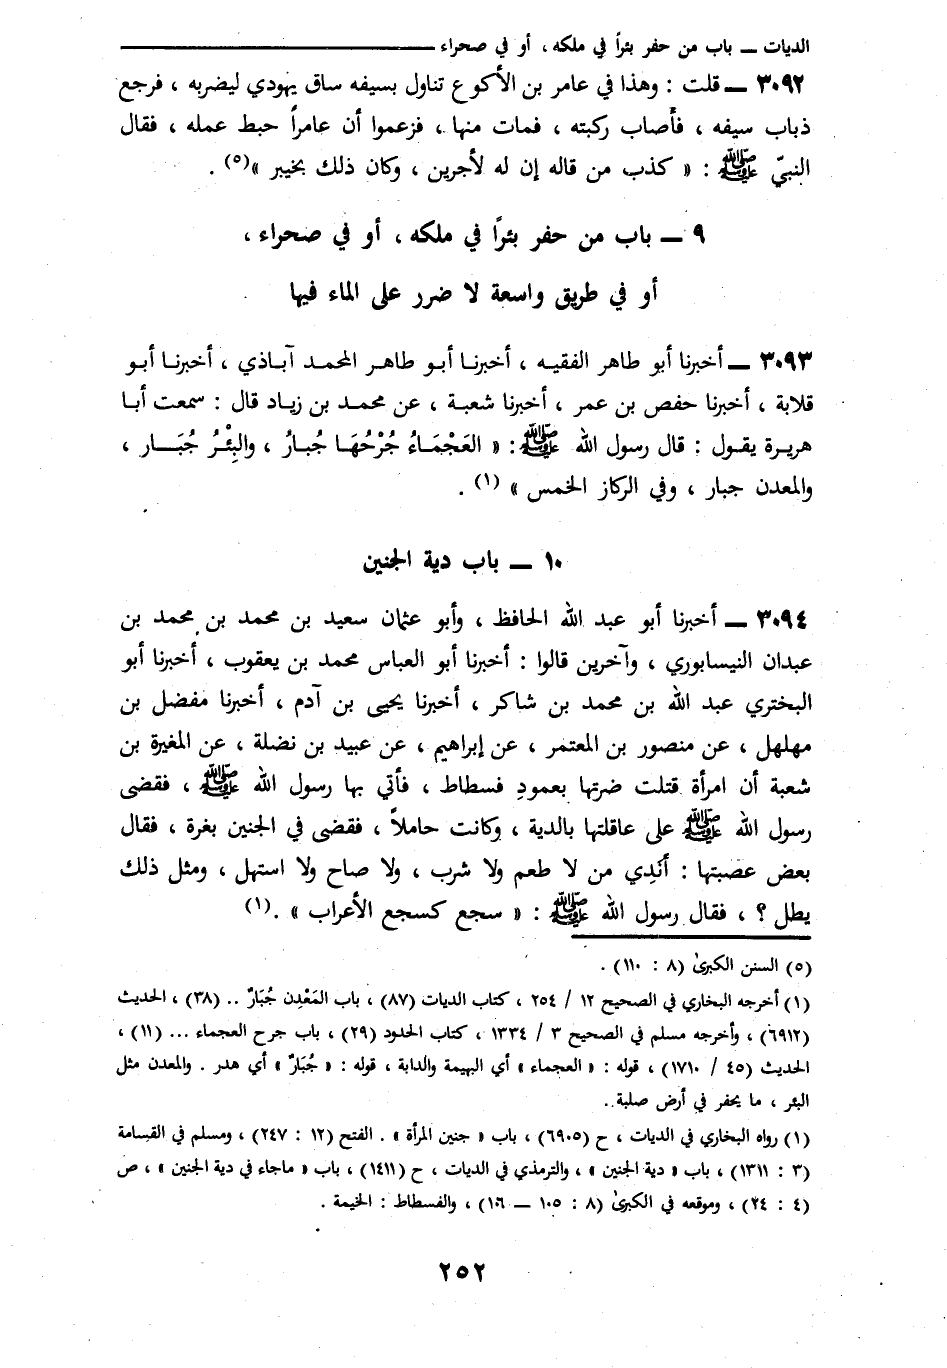 الديات ــ باب من حفر بئراً في ملكه ، أو في صحراء
٣٠٩٢ ــ قلت : وهذا في عامر بن الأكوع تناول بسيفه ساق يهودي ليضربه ، فرجع
ذباب سيفه ، فأصاب ركبته ، فمات منها ، فزعموا أن عامراً حبط عمله ، فقال
النبيّ ﷺ : « كذب من قاله إن له لأجرين ، وكان ذلك بخيبر »(٥) .
٩ ــ باب من حفر بئراً في ملكه ، أو في صحراء ،
أو في طريق واسعة لا ضرر على الماء فيها
٣٠٩٣ ــ أخبرنا أبو طاهر الفقيه ، أخبرنا أبو طاهر المحمد آباذي ، أخبرنا أبو
قلابة ، أخبرنا حفص بن عمر ، أخبرنا شعبة ، عن محمد بن زياد قال : سمعت أبا
هريرة يقول : قال رسول الله ﷺ : « العَجْمَاءُ جُرْحُهَا جُبارُ ، والبِئْرُ جُبَار ،
والمعدن جبار ، وفي الركاز الخمس » (١) .
١٠ ــ باب دية الجنين
٣٠٩٤ ــ أخبرنا أبو عبد الله الحافظ ، وأبو عثمان سعيد بن محمد بن محمد بن
عبدان النيسابوري ، وآخرين قالوا : أخبرنا أبو العباس محمد بن يعقوب ، أخبرنا أبو
البختري عبد الله بن محمد بن شاكر ، أخبرنا يحيى بن آدم ، أخبرنا مفضل بن
مهلهل ، عن منصور بن المعتمر ، عن إبراهيم ، عن عبيد بن نضلة ، عن المغيرة بن
شعبة أن امرأة قتلت ضرتها بعمودِ فسطاط ، فأتي بها رسول الله ﷺ ، فقضى
رسول الله ﷺ على عاقلتها بالدية ، وكانت حاملاً ، فقضى في الجنين بغرة ، فقال
بعض عصبتها : أنَدِي من لا طعم ولا شرب ، ولا صاح ولا استهل ، ومثل ذلك
يطل ؟ ، فقال رسول الله ﷺ : « سجع كسجع الأعراب » .(١)
(٥) السنن الكبرىٰ (٨ : ١١٠) .
(١) أخرجه البخاري في الصحيح ١٢ / ٢٥٤ ، كتاب الديات (٨٧) ، باب المَعْدِن جُبَارٌ .. (٣٨) ، الحديث
(٦٩١٢) ، وأخرجه مسلم في الصحيح ٣ / ١٣٣٤ ، كتاب الحدود (٢٩) ، باب جرح العجماء ... (١١) ،
الحديث (٤٥ / ١٧١٠) ، قوله : « العجماء » أي البهيمة والدابة ، قوله : « جُبَارٌ » أي هدر . والمعدن مثل
البئر ، ما يحفر في أرض صلبة .
(١) رواه البخاري في الديات ، ح (٦٩٠٥) ، باب « جنين المرأة » . الفتح (١٢ : ٢٤٧) ، ومسلم في القسامة
(٣ : ١٣١١) ، باب « دية الجنين » ، والترمذي في الديات ، ح (١٤١١) ، باب « ماجاء في دية الجنين » ، ص
(٤ : ٢٤) ، وموقعه في الكبرىٰ (٨ : ١٠٥ ــ ١٠٦) ، والفسطاط : الخيمة .
٢٥٢